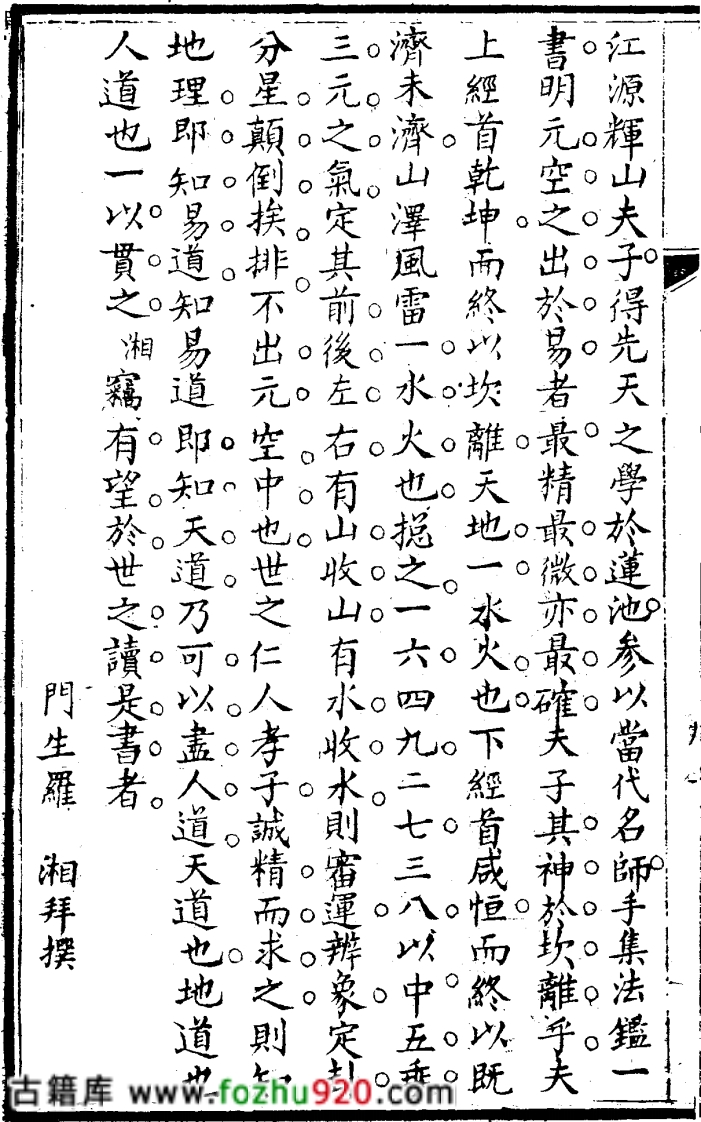 江源輝山夫子得先天之學於蓮池參以當代名師手集法鑑一
書明元空之出於易者最精最微亦最確夫子其神於坎離乎夫
上經首乾坤而終以坎離天地一水火也下經首咸恒而終以既
濟未濟山澤風雷一水火也揔之一六四九二七三八以中五乘
三元之氣定其前後左右有山收山有水收水則審運辨象定卦
分星顛倒挨排不出元空中也世之仁人孝子誠精而求之則知
地理即知易道知易道即知天道乃可以盡人道天道也地道也
人道也一以貫之湘竊有望於世之讀是書者
門生羅 湘拜撰
古籍库 www.fozhu920.com